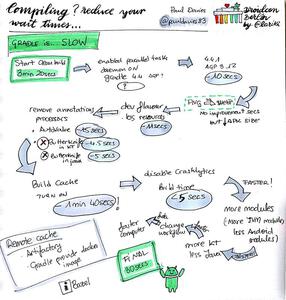 Compiling? reduce your
wait times...
Paul Davies
@pauldavies83
Droidcon
Berlin
GRADLE IS... SLOW
Start clean build
3min 20secs
enabled parallel tasks
daemon ON
gradle 4.4
4.4.1
AGP 3.1.2
-10secs
PNG
No improvement secs
but APK SIZE
dev flavour
bs resources
-11secs
remove annotations
processors
Autovalue
-15 secs
Butterknife
-4.5secs
Butterknife
-5secs
Build Cache
TURN ON
1min 40secs
disable Crashlytics
Build time
5secs
FASTER!
more modules
(more JVM modules
less Android
modules)
more kt
less Java
change
workflow
faster
computer
FINAL
80secs
Remote cache
Artifactory
Gradle provide docker
image
Bazel